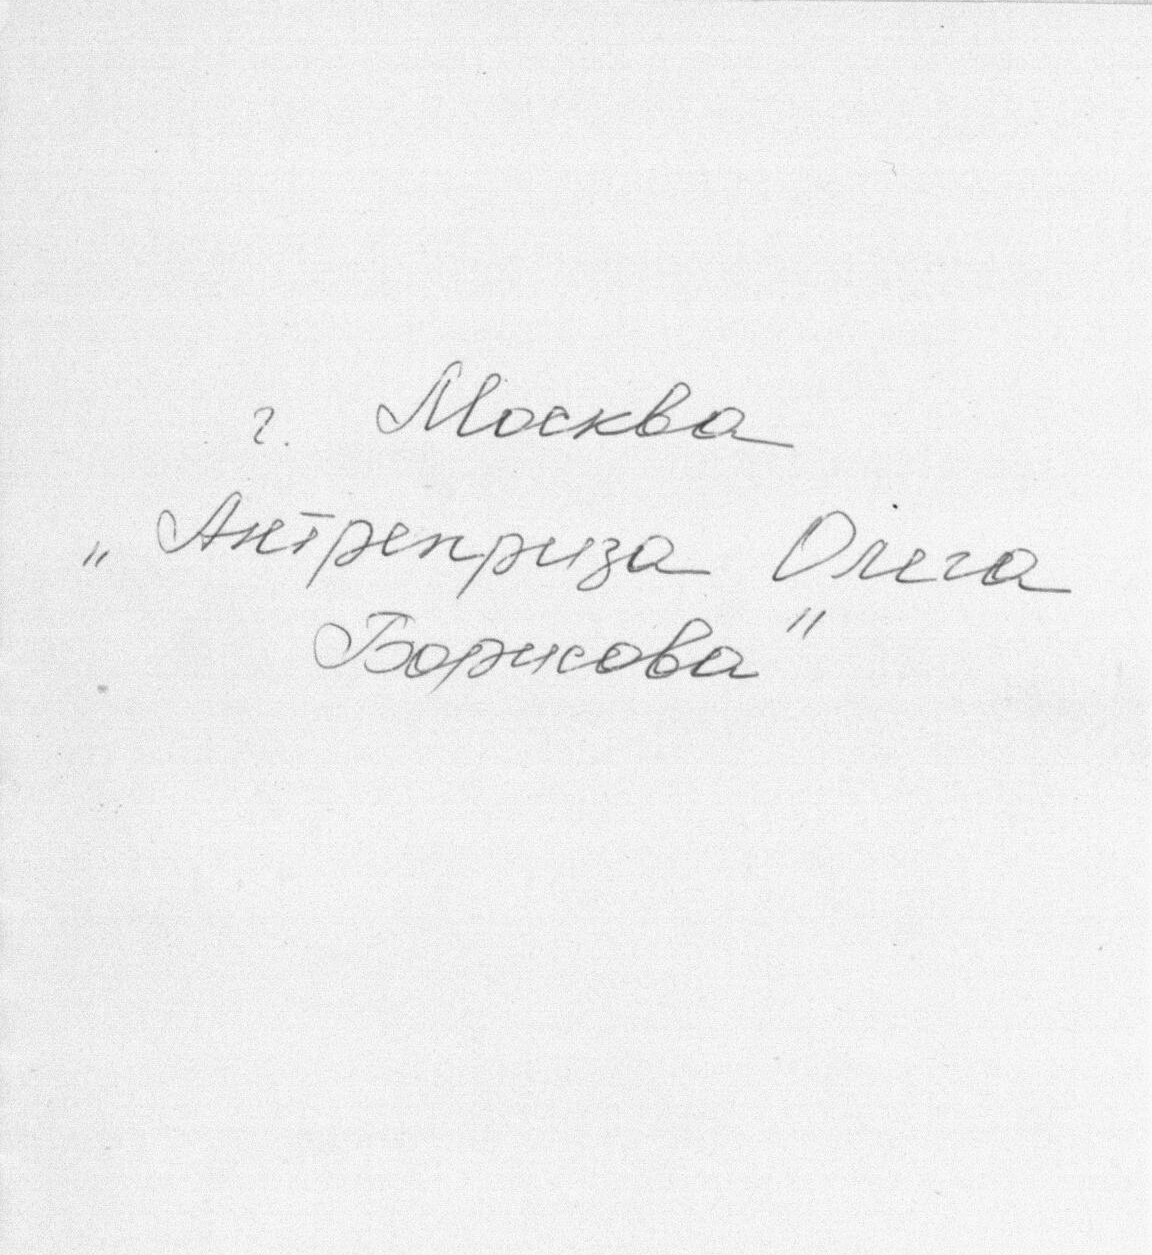 г. Москва
„Антреприза Олега
Борисова"